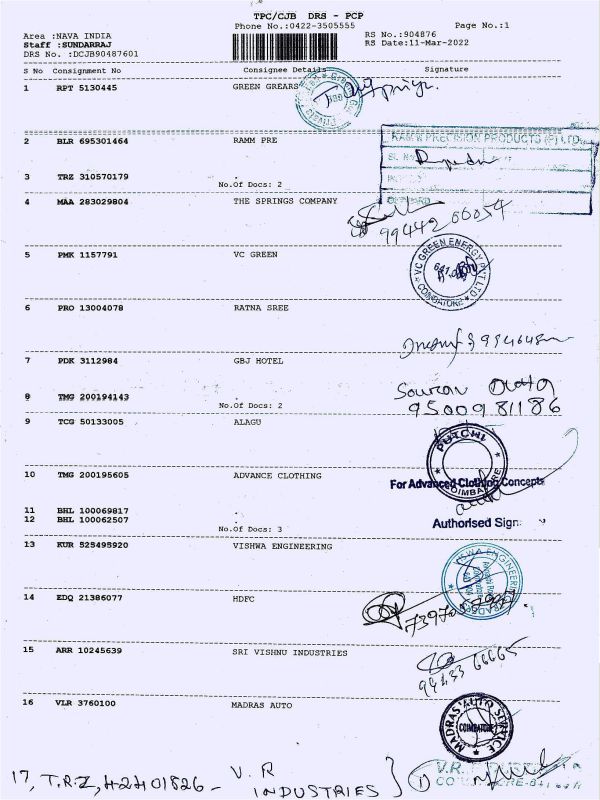 TPC/CJB DRS - PCP
Phone No.:0422-3505555 Page No.:1
Area :NAVA INDIA RS No.:904876
Staff :SUNDARRAJ RS Date:11-Mar-2022
DRS No. :DCJB90487601
S No Consignment No Consignee Details Signature
1 RPT 5130445 GREEN GREARS
2 BLR 695301464 RAMM PRE
PRECISION PRODUCTS (P) LTD
3 TRZ 310570179
No.Of Docs: 2
4 MAA 283029804 THE SPRINGS COMPANY
99442 06054
5 PMK 1157791 VC GREEN
VC GREEN ENERGY PVT LTD
COIMBATORE
6 PRO 13004078 RATNA SREE
7 PDK 3112984 GBJ HOTEL
8 TMG 200194143
No.Of Docs: 2
9500981186
9 TCG 50133005 ALAGU
10 TMG 200195605 ADVANCE CLOTHING
For Advanced Clothing Concepts
11 BHL 100069817
12 BHL 100062507
No.Of Docs: 3
Authorised Sign
13 KUR 525495920 VISHWA ENGINEERING
14 EDQ 21386077 HDFC
15 ARR 10245639 SRI VISHNU INDUSTRIES
16 VLR 3760100 MADRAS AUTO
MADRAS AUTO SERVICE
COIMBATORE
17, T.R.Z, 42401826 - V.R INDUSTRIES } 1